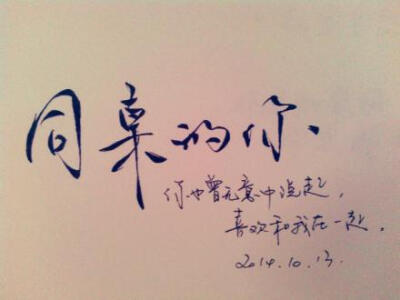 同桌的你、
你也曾无意中说起,
喜欢和我在一起.
2014.10.13.